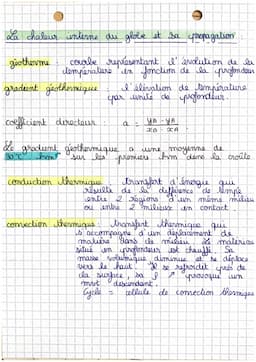 La chaleur interne du globe et sa propagation :
géotherme : courbe représentant l'évolution de la
température en fonction de la profondeur
gradient géothermique : l'élévation de température
par unité de profondeur.
coefficient directeur : a = yB - yA / xB - xA
Le gradient géothermique a une moyenne de
30°C . km⁻¹ sur les premiers km dans la croûte
conduction thermique : transfert d'énergie qui
résulte de la différence de temp
entre 2 régions d'un même milieu
ou entre 2 milieux en contact.
convection thermique : transfert thermique qui
s'accompagne d'un déplacement de
matière dans ce milieu. Le matériau
situé en profondeur est chauffé. Sa
masse volumique diminue et se déplace
vers le haut. Il se refroidit près de
la surface, sa ρ ↗ provoque un
mvt descendant.
Cycle = cellule de convection thermique